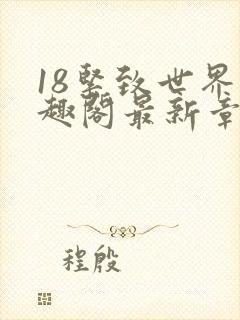 18坚致世界
趣阁最新章
程殷